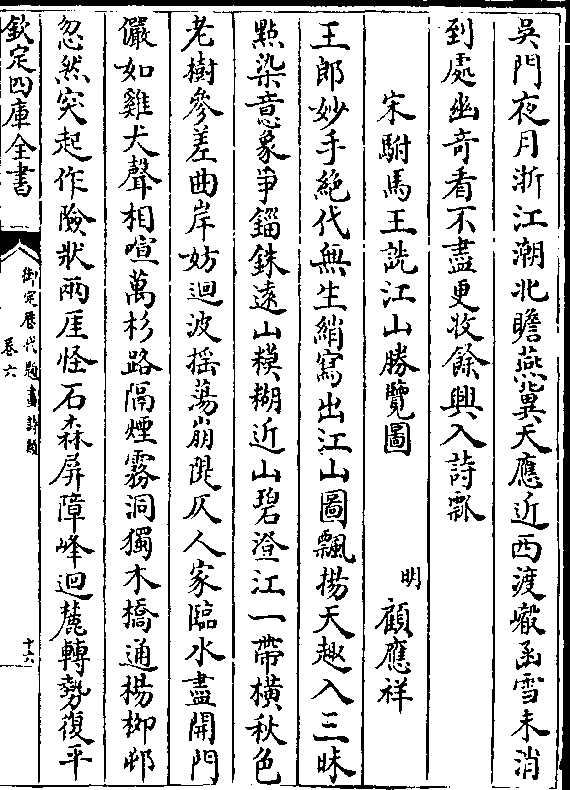 吳門夜月浙江潮北瞻燕冀天應近西渡崤函雪未消
到處幽奇看不盡更收餘興入詩瓢
宋駙馬王詵江山勝覽圖
明
顧應祥
王郎妙手絶代無生綃寫出江山圖飄揚天趣入三昧
㸃染意象爭錙銖遠山糢糊近山碧澄江一帶横秋色
老樹參差曲岸妨迴波揺蕩崩隄仄人家臨水盡開門
儼如雞犬聲相喧萬杉路隔煙霧洞獨木橋通楊栁邨
忽然突起作險狀兩厓怪石森屏障峰迴麓轉勢復平
欽定四庫全書
御定歴代題畫詩類
卷六
十六